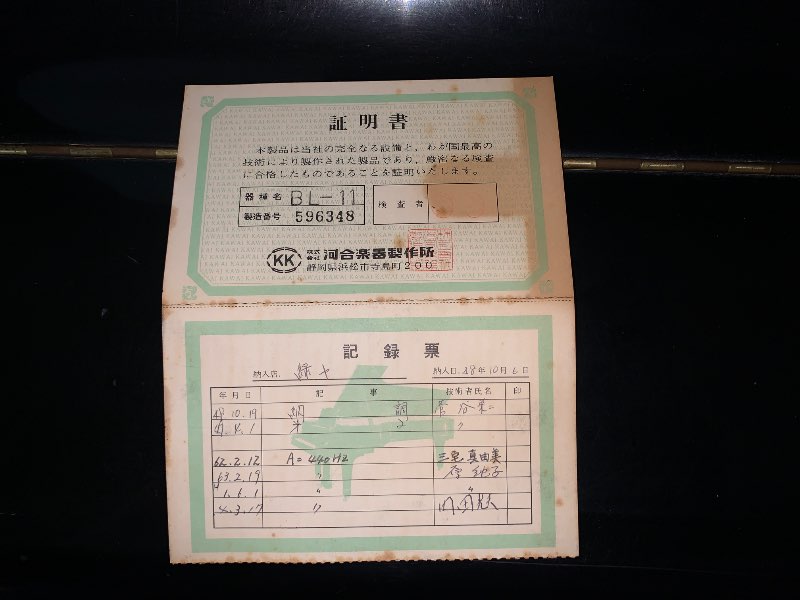 証明書
本製品は当社の完全なる設備と、わが国最高の
技術により製作された製品であり、厳密なる検査
に合格したものであることを証明いたします。
器種名 BL-11 検査者
製造番号 596348
KK 株式会社 河合楽器製作所
静岡県浜松市寺島町200
記録票
納入店 納入日 48年10月6日
年月日 記事 技術者氏名 印
48.10.19 調
62.2.12 A=440Hz 三里 真由美
63.2.19 〃
1.6.1 〃 〃
4.3.17 〃